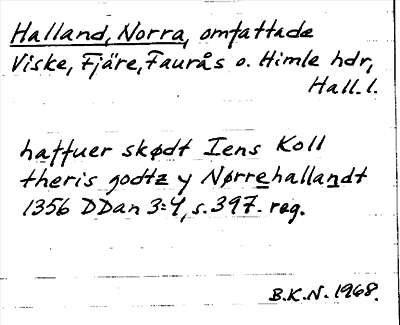 Halland, Norra, omfattade
Viske, Fjäre, Faurås o. Himle hdr,
Hall. l.
haffuer skødt Iens Koll
theris godtz y Nørrehallandt
1356 DDan 3:4, s. 397. reg.
B.K.N. 1968.